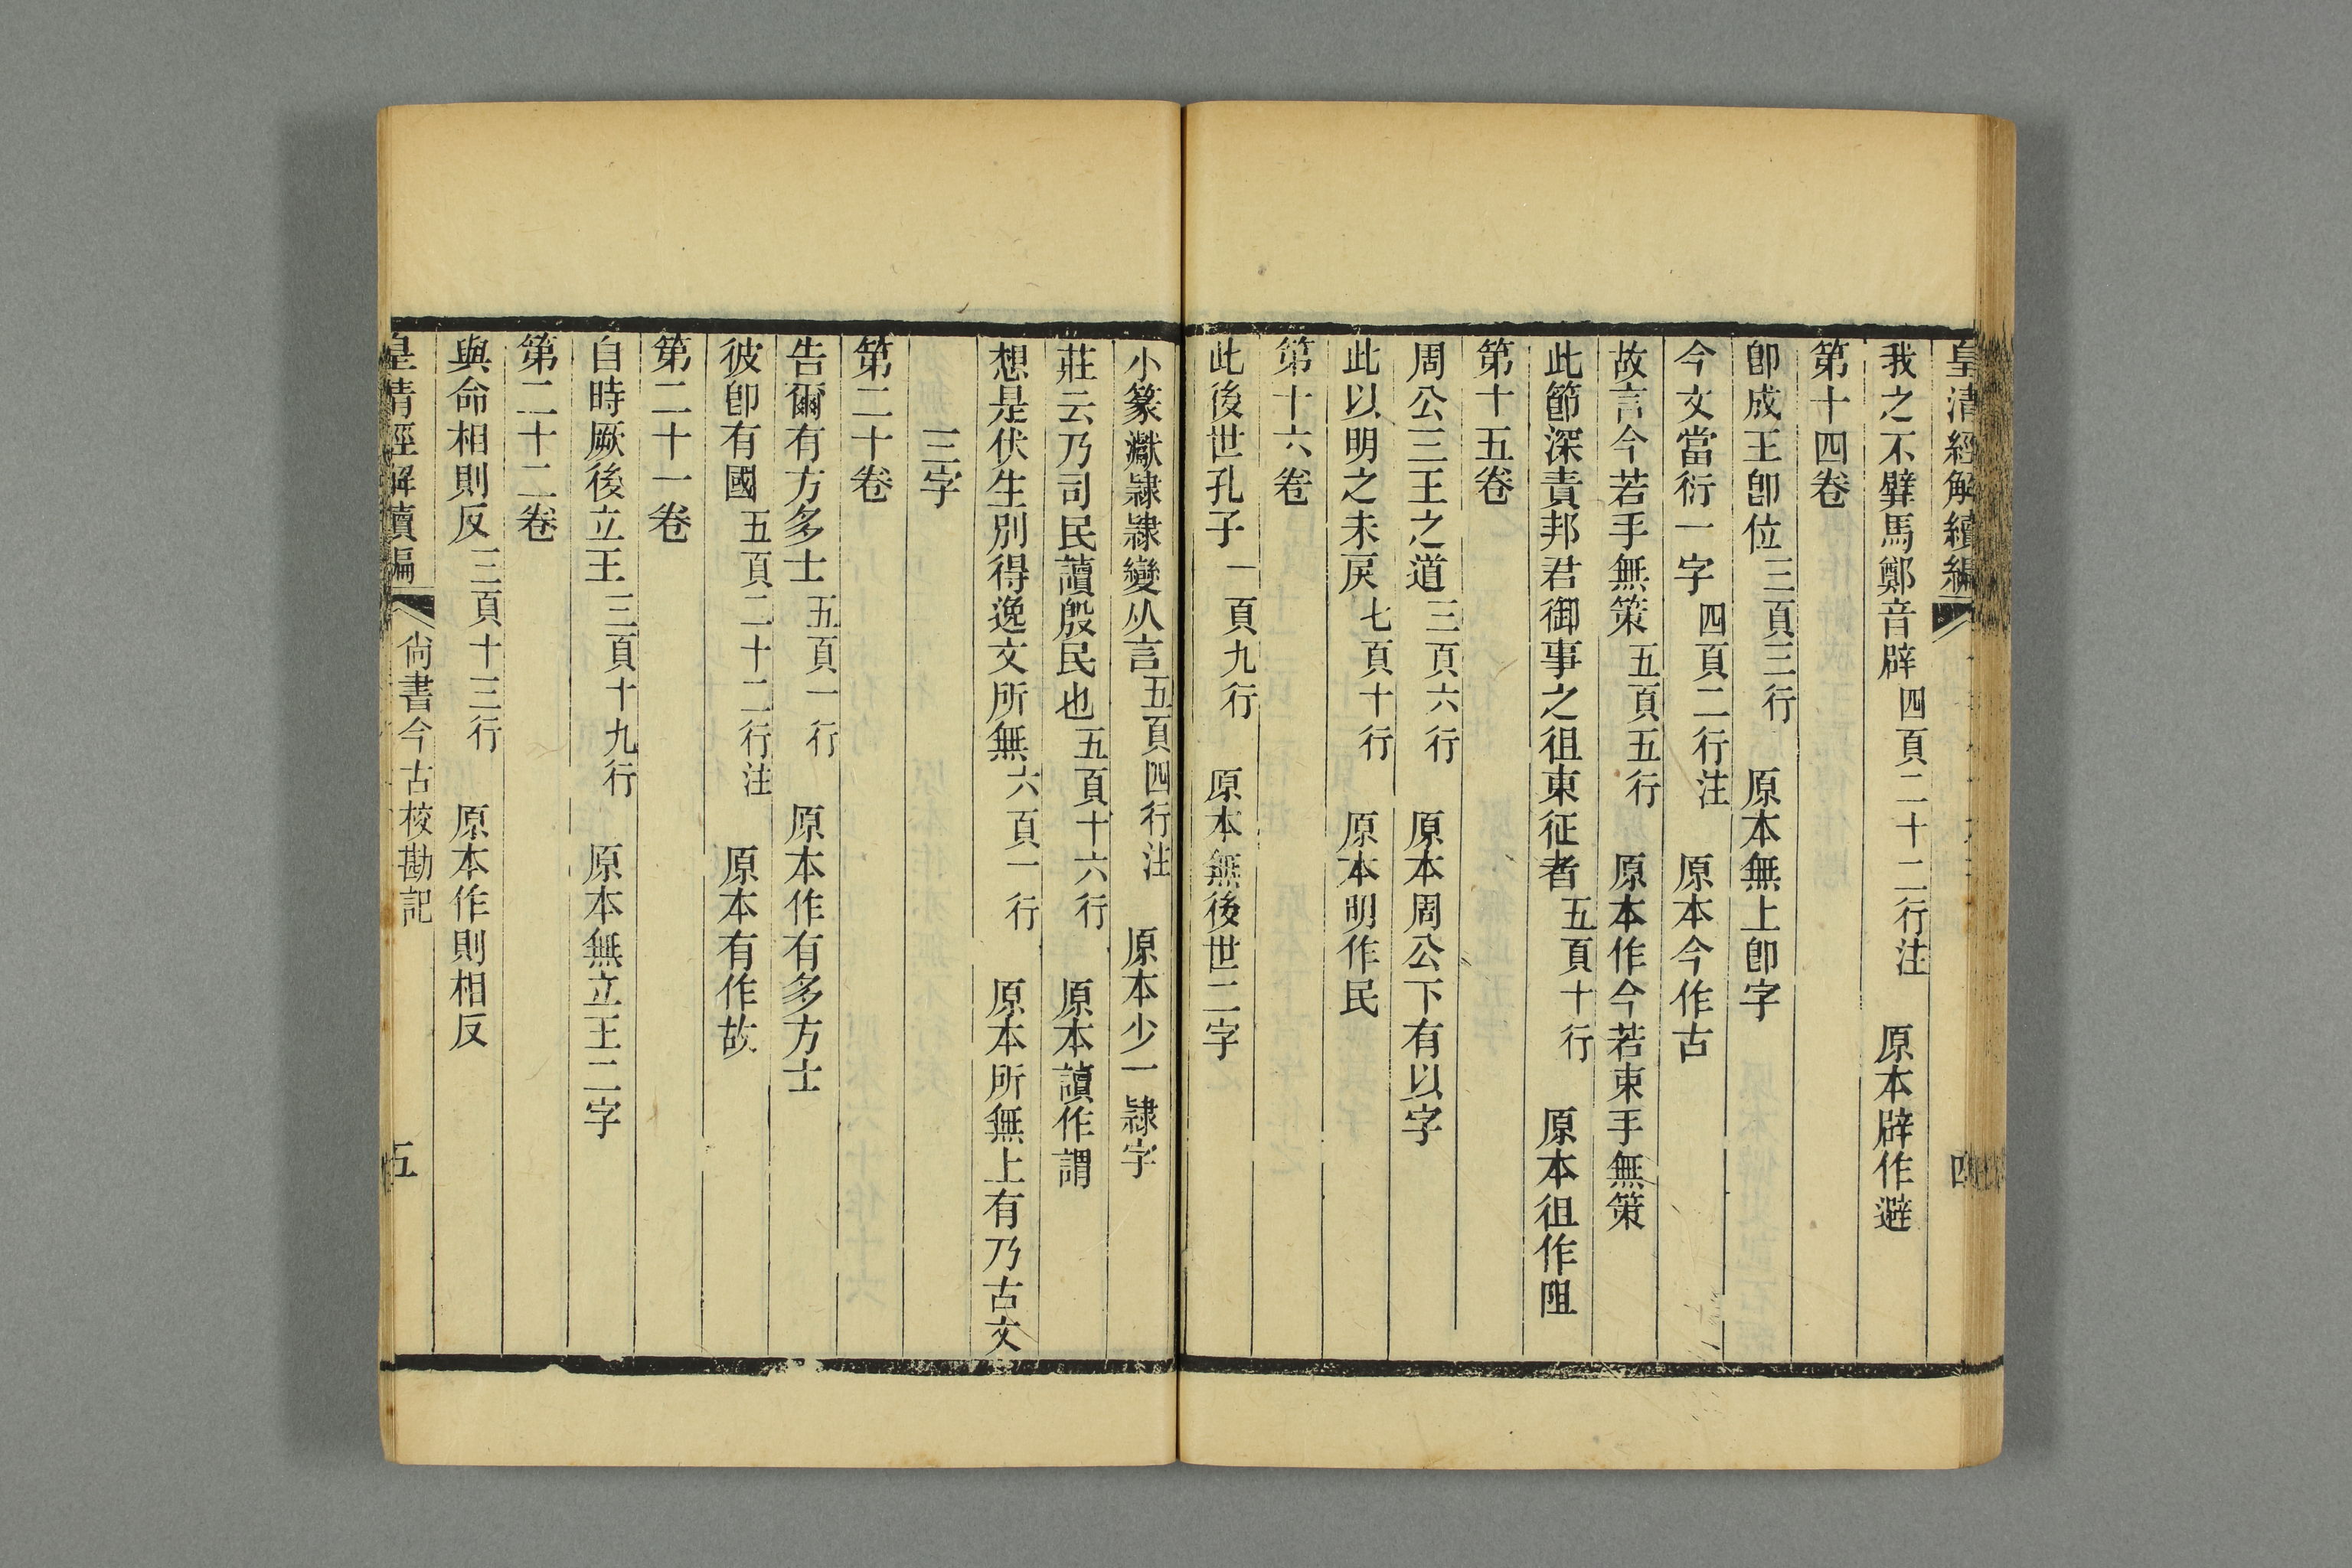 皇清經解續編
四
我之不辟馬鄭音辟四頁二十二行注 原本辟作避
第十四卷
卽成王卽位三頁三行 原本無上卽字
今文當衍一字四頁二行注 原本今作古
故言今若手無策五頁五行 原本作今若束手無策
此節深責邦君御事之徂東征者五頁十行 原本徂作阻
第十五卷
周公三王之道三頁六行 原本周公下有以字
此以明之未戾七頁十行 原本明作民
第十六卷
此後世孔子一頁九行 原本無後世二字
小篆灋隸隸變从言五頁四行注 原本少一隸字
莊云乃司民讀殷民也五頁十六行 原本讀作謂
想是伏生別得逸文所無六頁一行 原本所無上有乃古文
三字
第二十卷
告爾有方多士五頁一行 原本作有多方士
彼卽有國五頁二十二行注 原本有作故
第二十一卷
自時厥後立王三頁十九行 原本無立王二字
第二十二卷
與命相則反三頁十三行 原本作則相反
皇清經解續編 尙書今古校勘記 五